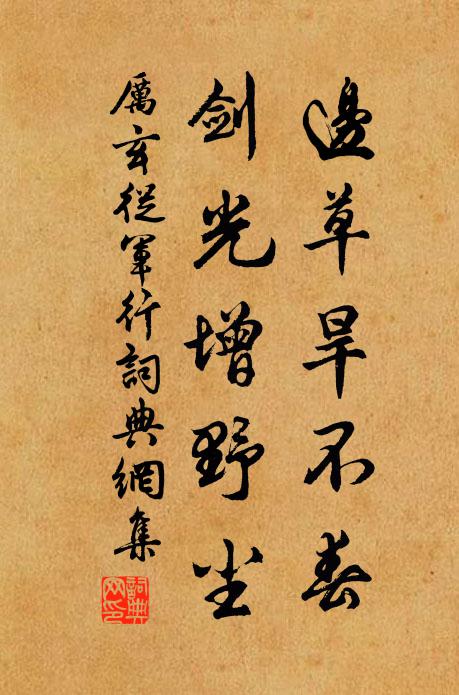 邊草旱不春
劍光增野尘
厲玄從軍行詞典網集
詞典网印